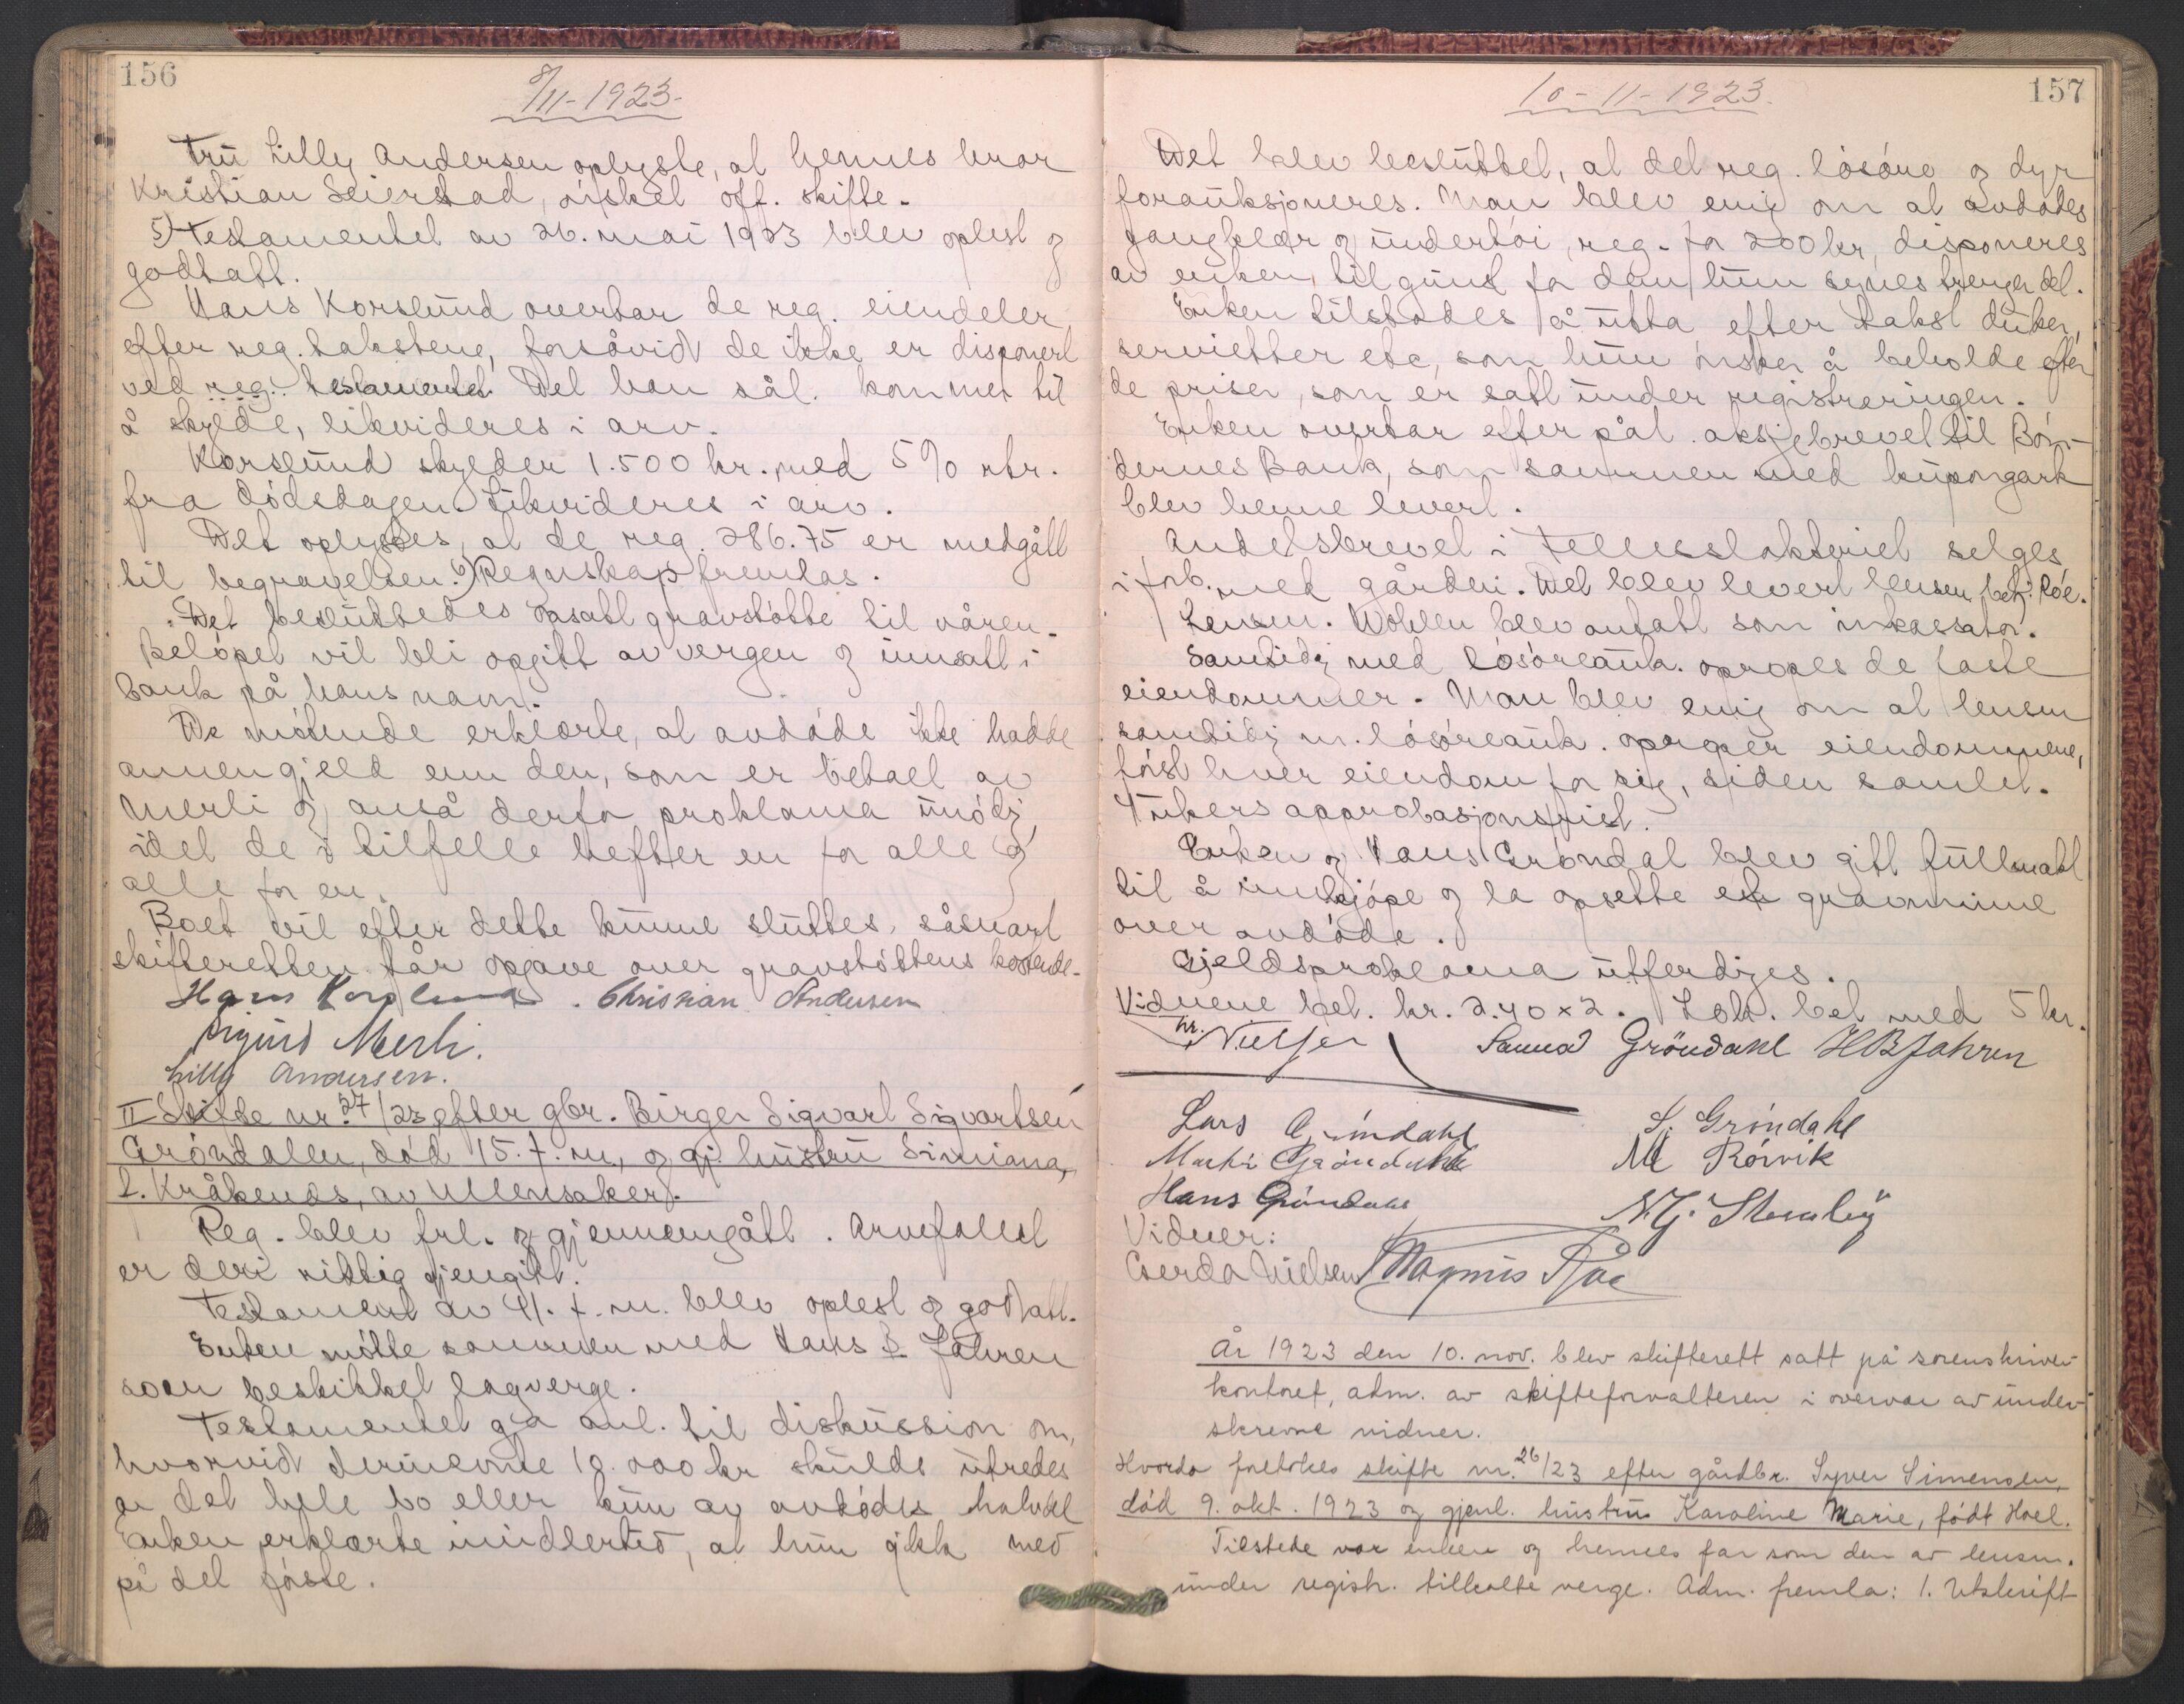 156
8/11-1923-
Fru Lilly Andersen oplyste, at hennes bror
Kristian Seierstad, ønsket off. skifte.
5) Testamentet av 26. mai 1923 blev oplest og
godtatt.
Hans Korslund overtar de reg. eiendeler
efter reg. takstene, forsåvidt de ikke er disponert
ved reg. testamentet. Det han sål. kommer til
å skylde, likvideres i arv.
Korslund skylder 1.500 kr. med 5% rtr.
fra dødsdagen. Likvideres i arv.
Det oplystes, at de reg. 286.75 er medgått
til begravelsen. 6) Regnskap fremlas.
Det besluttedes opsatt gravstøtte til våren.
Beløpet vil bli opgitt av vergen og innsatt i
bank på hans navn.
De møtende erklærte, at avdøde ikke hadde
annen gjeld enn den, som er betalt av
Merli og anså derfor proklama unødig,
idet de i tilfelle hefter en for alle og
alle for en.
Boet vil efter dette kunne sluttes, såsnart
skifteretten får opgave over gravstøttens kostende.
Hans Korslund. Christian Andersen
Sigurd Merli.
Lilly Andersen.
II Skifte nr. 27/23 efter gbr. Birger Sigvart Sigvartsen
Grøndalen, død 15. f. m., og gj. hustru Simiana,
f. Kråkenes, av Ullensaker.
Reg. blev frl. og gjennemgått. Arvefallet
er deri riktig gjengitt.
Testament av 4/. f. m. blev oplest og godtatt.
Enken møtte sammen med Hans B. Jahren
som beskikket lagverge.
Testamentet ga anl. til diskussion om,
hvorvidt derinevnte 10.000 kr skulde utredes
av det hele bo eller kun av avdødes halvdel
Enken erklærte imidlertid, at hun gikk med
på det første.
10-11-1923.
157
Det blev besluttet, at det reg. løsøre og dyr
forauksjoneres. Man blev enig om at avdødes
gangklær og undertøi, reg. for 200 kr, disponeres
av enken til gunst for dem hun synes trenger det.
Enken tilstodes å utta efter takst duker,
servietter etc, som hun ønsker å beholde efter
de priser, som er satt under registreringen.
Enken overtar efter pål. aksjebrevet til Bøn-
dernes Bank, som sammen med kupongark
blev henne levert.
Andelsbrevet i Fellesslakteriet selges
i forb. med gården. Det blev levert lensm. betj. Röe.
Lensm. Wohlen blev antatt som inkassator.
Samtidig med løsøreauk. opropes de faste
eiendommer. Man blev enig om at lensm
samtidig m. løsøreauk. oproper eiendommene,
først hver eiendom for sig, siden samlet.
4 ukers approbasjonsfrist.
Enken og Hans Grøndal blev gitt fullmakt
til å innkjøpe og la opsette et gravminne
over avdøde.
Gjeldsproklama utferdiges.
Vidnene bet. kr. 2.40 x 2. Lok. bet med 5 kr.
hr. Nielsen Sanna Gröndahl H B Jahren
Lars Grøndahl S. Grøndahl
Marki Grøndahl M Rørvik
Hans Grøndahl
Vidner:
Gerda Nielsen Magnus Röe
År 1923 den 10. nov. blev skifterett satt på sorenskriver-
kontoret, adm. av skifteforvalteren i overvær av under-
skrevne vidner.
Hvorda foretokes skifte nr. 26/23 efter gårdbr. Syver Simensen,
død 9. okt. 1923 og gjenl. hustru Karoline Marie, født Hoel.
Tilstede var enken og hennes far som den av lensm.
under registr. tilkalte verge. Adm. fremla: 1. Utskrift